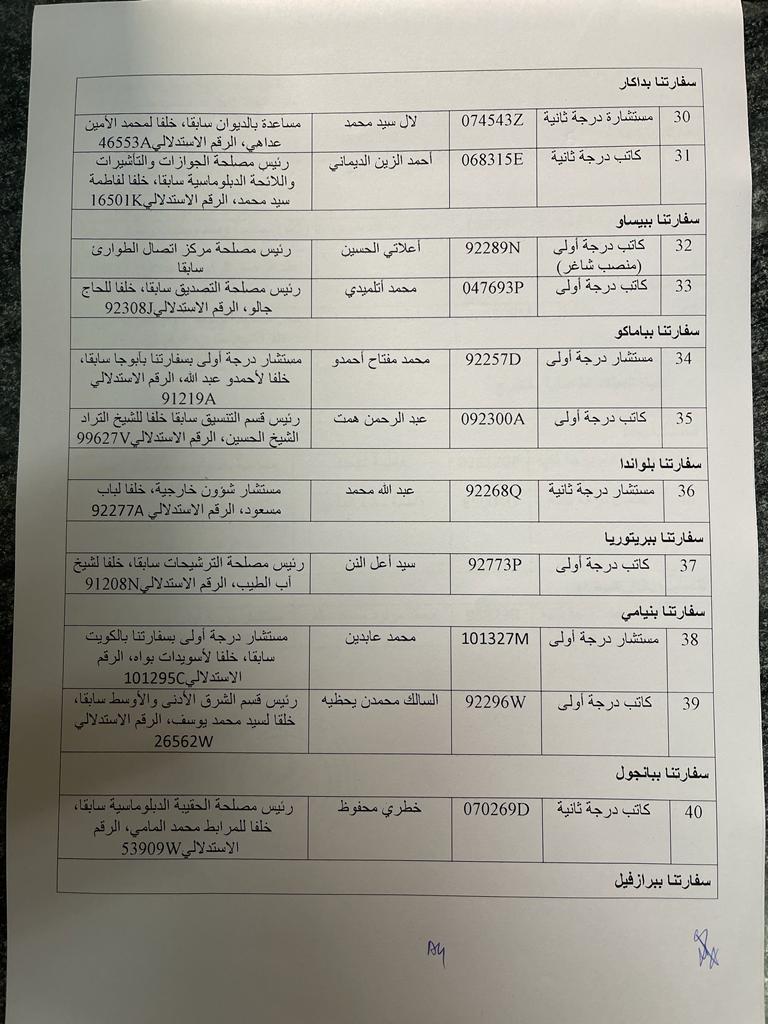 سفارتنا بداكار
30 مستشارة درجة ثانية 074543Z لال سيد محمد مساعدة بالديوان سابقا، خلفا لمحمد الأمين
عداهي، الرقم الاستدلالي 46553A
31 كاتب درجة ثانية 068315E أحمد الزين الديماني رئيس مصلحة الجوازات والتأشيرات
واللائحة الدبلوماسية سابقا، خلفا لفاطمة
سيد محمد، الرقم الاستدلالي 16501K
سفارتنا ببيساو
32 كاتب درجة أولى 92289N أعلاتي الحسين رئيس مصلحة مركز اتصال الطوارئ
(منصب شاغر) سابقا
33 كاتب درجة أولى 047693P محمد أتلميدي رئيس مصلحة التصديق سابقا، خلفا للحاج
جالو، الرقم الاستدلالي 92308J
سفارتنا بباماكو
34 مستشار درجة أولى 92257D محمد مفتاح أحمدو مستشار درجة أولى بسفارتنا بأبوجا سابقا،
خلفا لأحمدو عبد الله، الرقم الاستدلالي
91219A
35 كاتب درجة أولى 092300A عبد الرحمن همت رئيس قسم التنسيق سابقا خلفا للشيخ التراد
الشيخ الحسين، الرقم الاستدلالي 99627V
سفارتنا بلواندا
36 مستشار درجة ثانية 92268Q عبد الله محمد مستشار شؤون خارجية، خلفا لباب
مسعود، الرقم الاستدلالي 92277A
سفارتنا ببريتوريا
37 كاتب درجة أولى 92773P سيد أعل النن رئيس مصلحة الترشيحات سابقا، خلفا لشيخ
أب الطيب، الرقم الاستدلالي 91208N
سفارتنا بنيامي
38 مستشار درجة أولى 101327M محمد عابدين مستشار درجة أولى بسفارتنا بالكويت
سابقا، خلفا لأسويدات بواه، الرقم
الاستدلالي 101295C
39 كاتب درجة أولى 92296W السالك محمدن يحظيه رئيس قسم الشرق الأدنى والأوسط سابقا،
خلفا لسيد محمد يوسف، الرقم الاستدلالي
26562W
سفارتنا ببانجول
40 كاتب درجة ثانية 070269D خطري محفوظ رئيس مصلحة الحقيبة الدبلوماسية سابقا،
خلفا للمرابط محمد المامي، الرقم
الاستدلالي 53909W
سفارتنا ببرازفيل